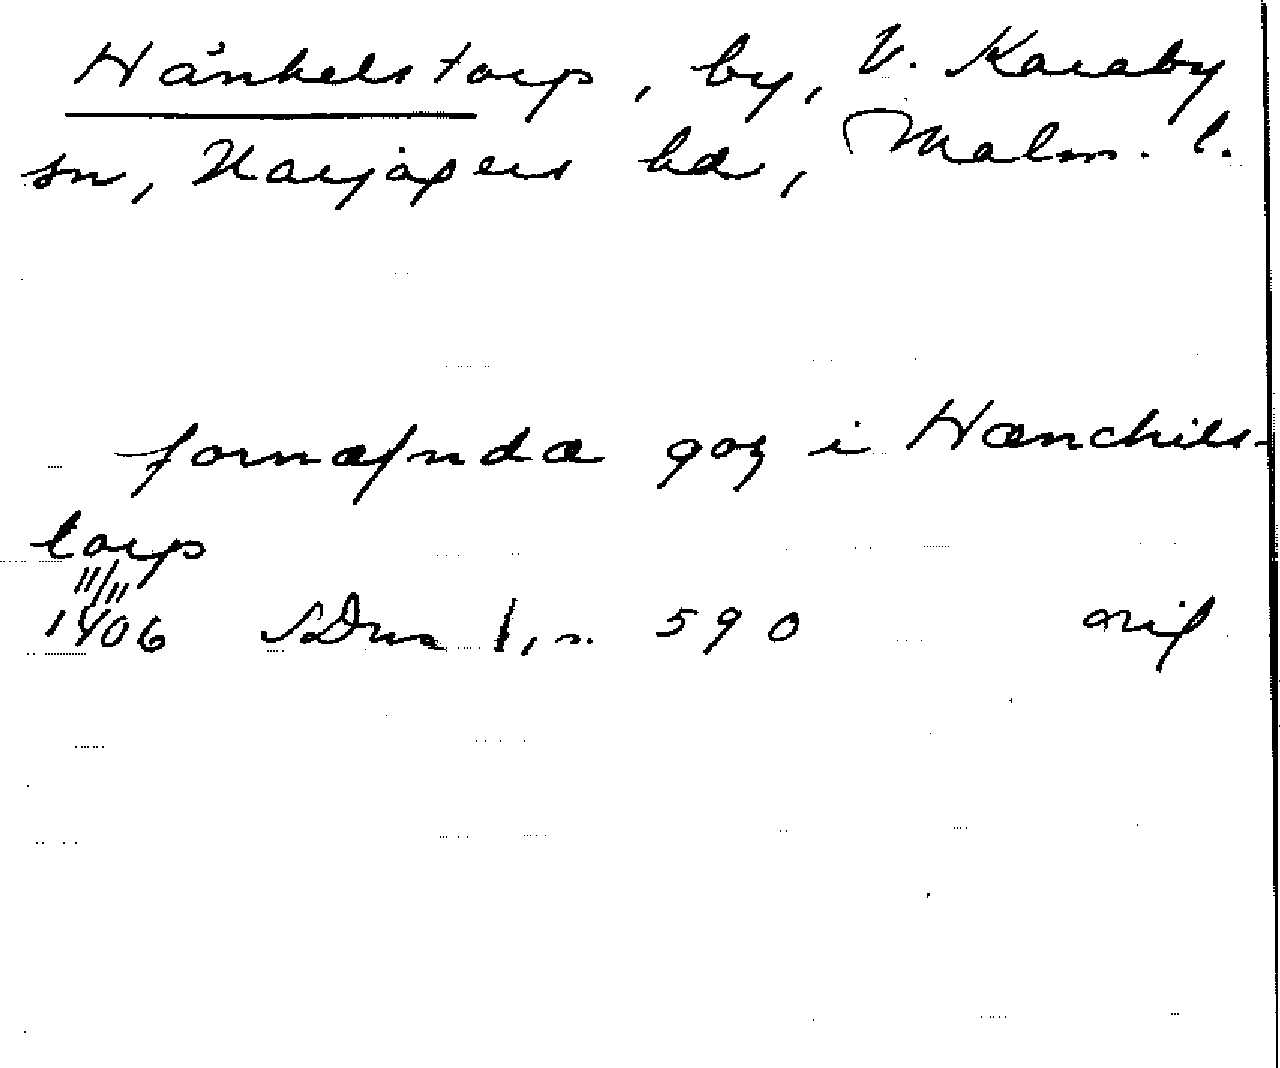 Hänkelstorp, by, V. Karaby
sn, Harjagers hd, Malm. l.
fornæfnda goz i Hænchils-
torp
11/11
1406 SDns 1, s. 590 orig